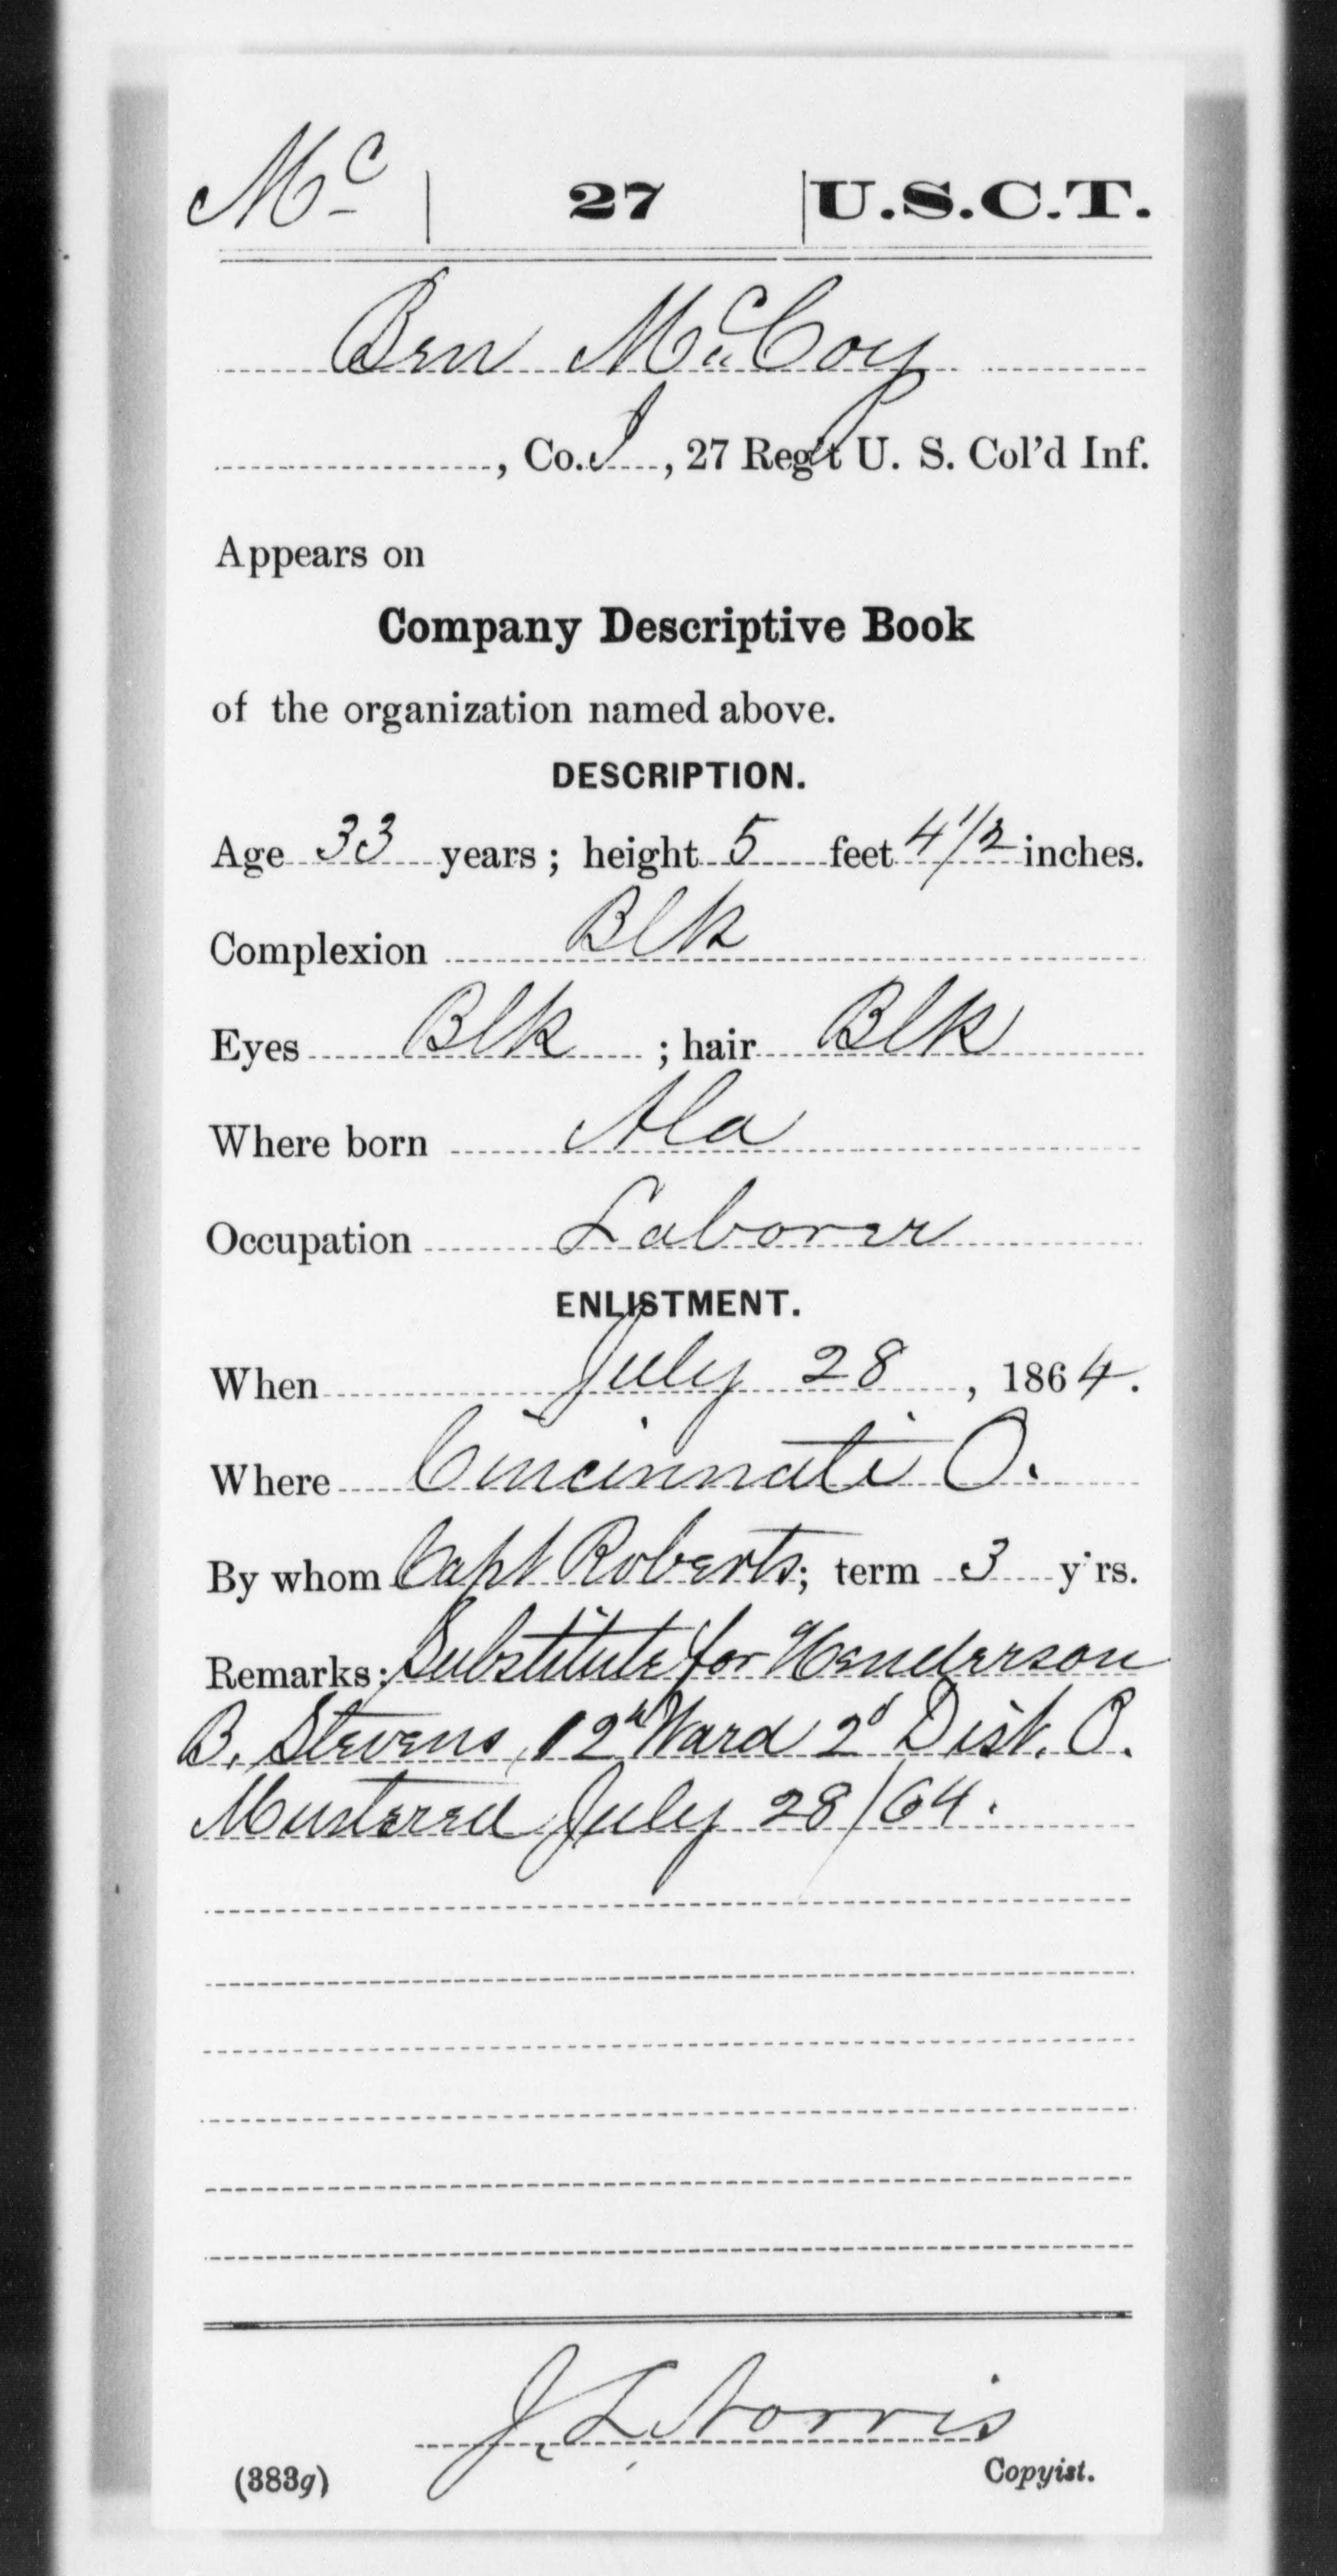 Mc | 27 | U.S.C.T.
Ben McCoy
, Co. I, 27 Reg't U. S. Col'd Inf.
Appears on
Company Descriptive Book
of the organization named above.
DESCRIPTION.
Age 33 years; height 5 feet 4 1/2 inches.
Complexion Blk
Eyes Blk ; hair Blk
Where born Ala
Occupation Laborer
ENLISTMENT.
When July 28, 1864.
Where Cincinnati O.
By whom Capt Roberts; term 3 y'rs.
Remarks: Substitute for Henderson
B. Stevens, 12th Ward 2d Dist. O.
Mustered July 28/64.
J. L. Norris
(383g) Copyist.